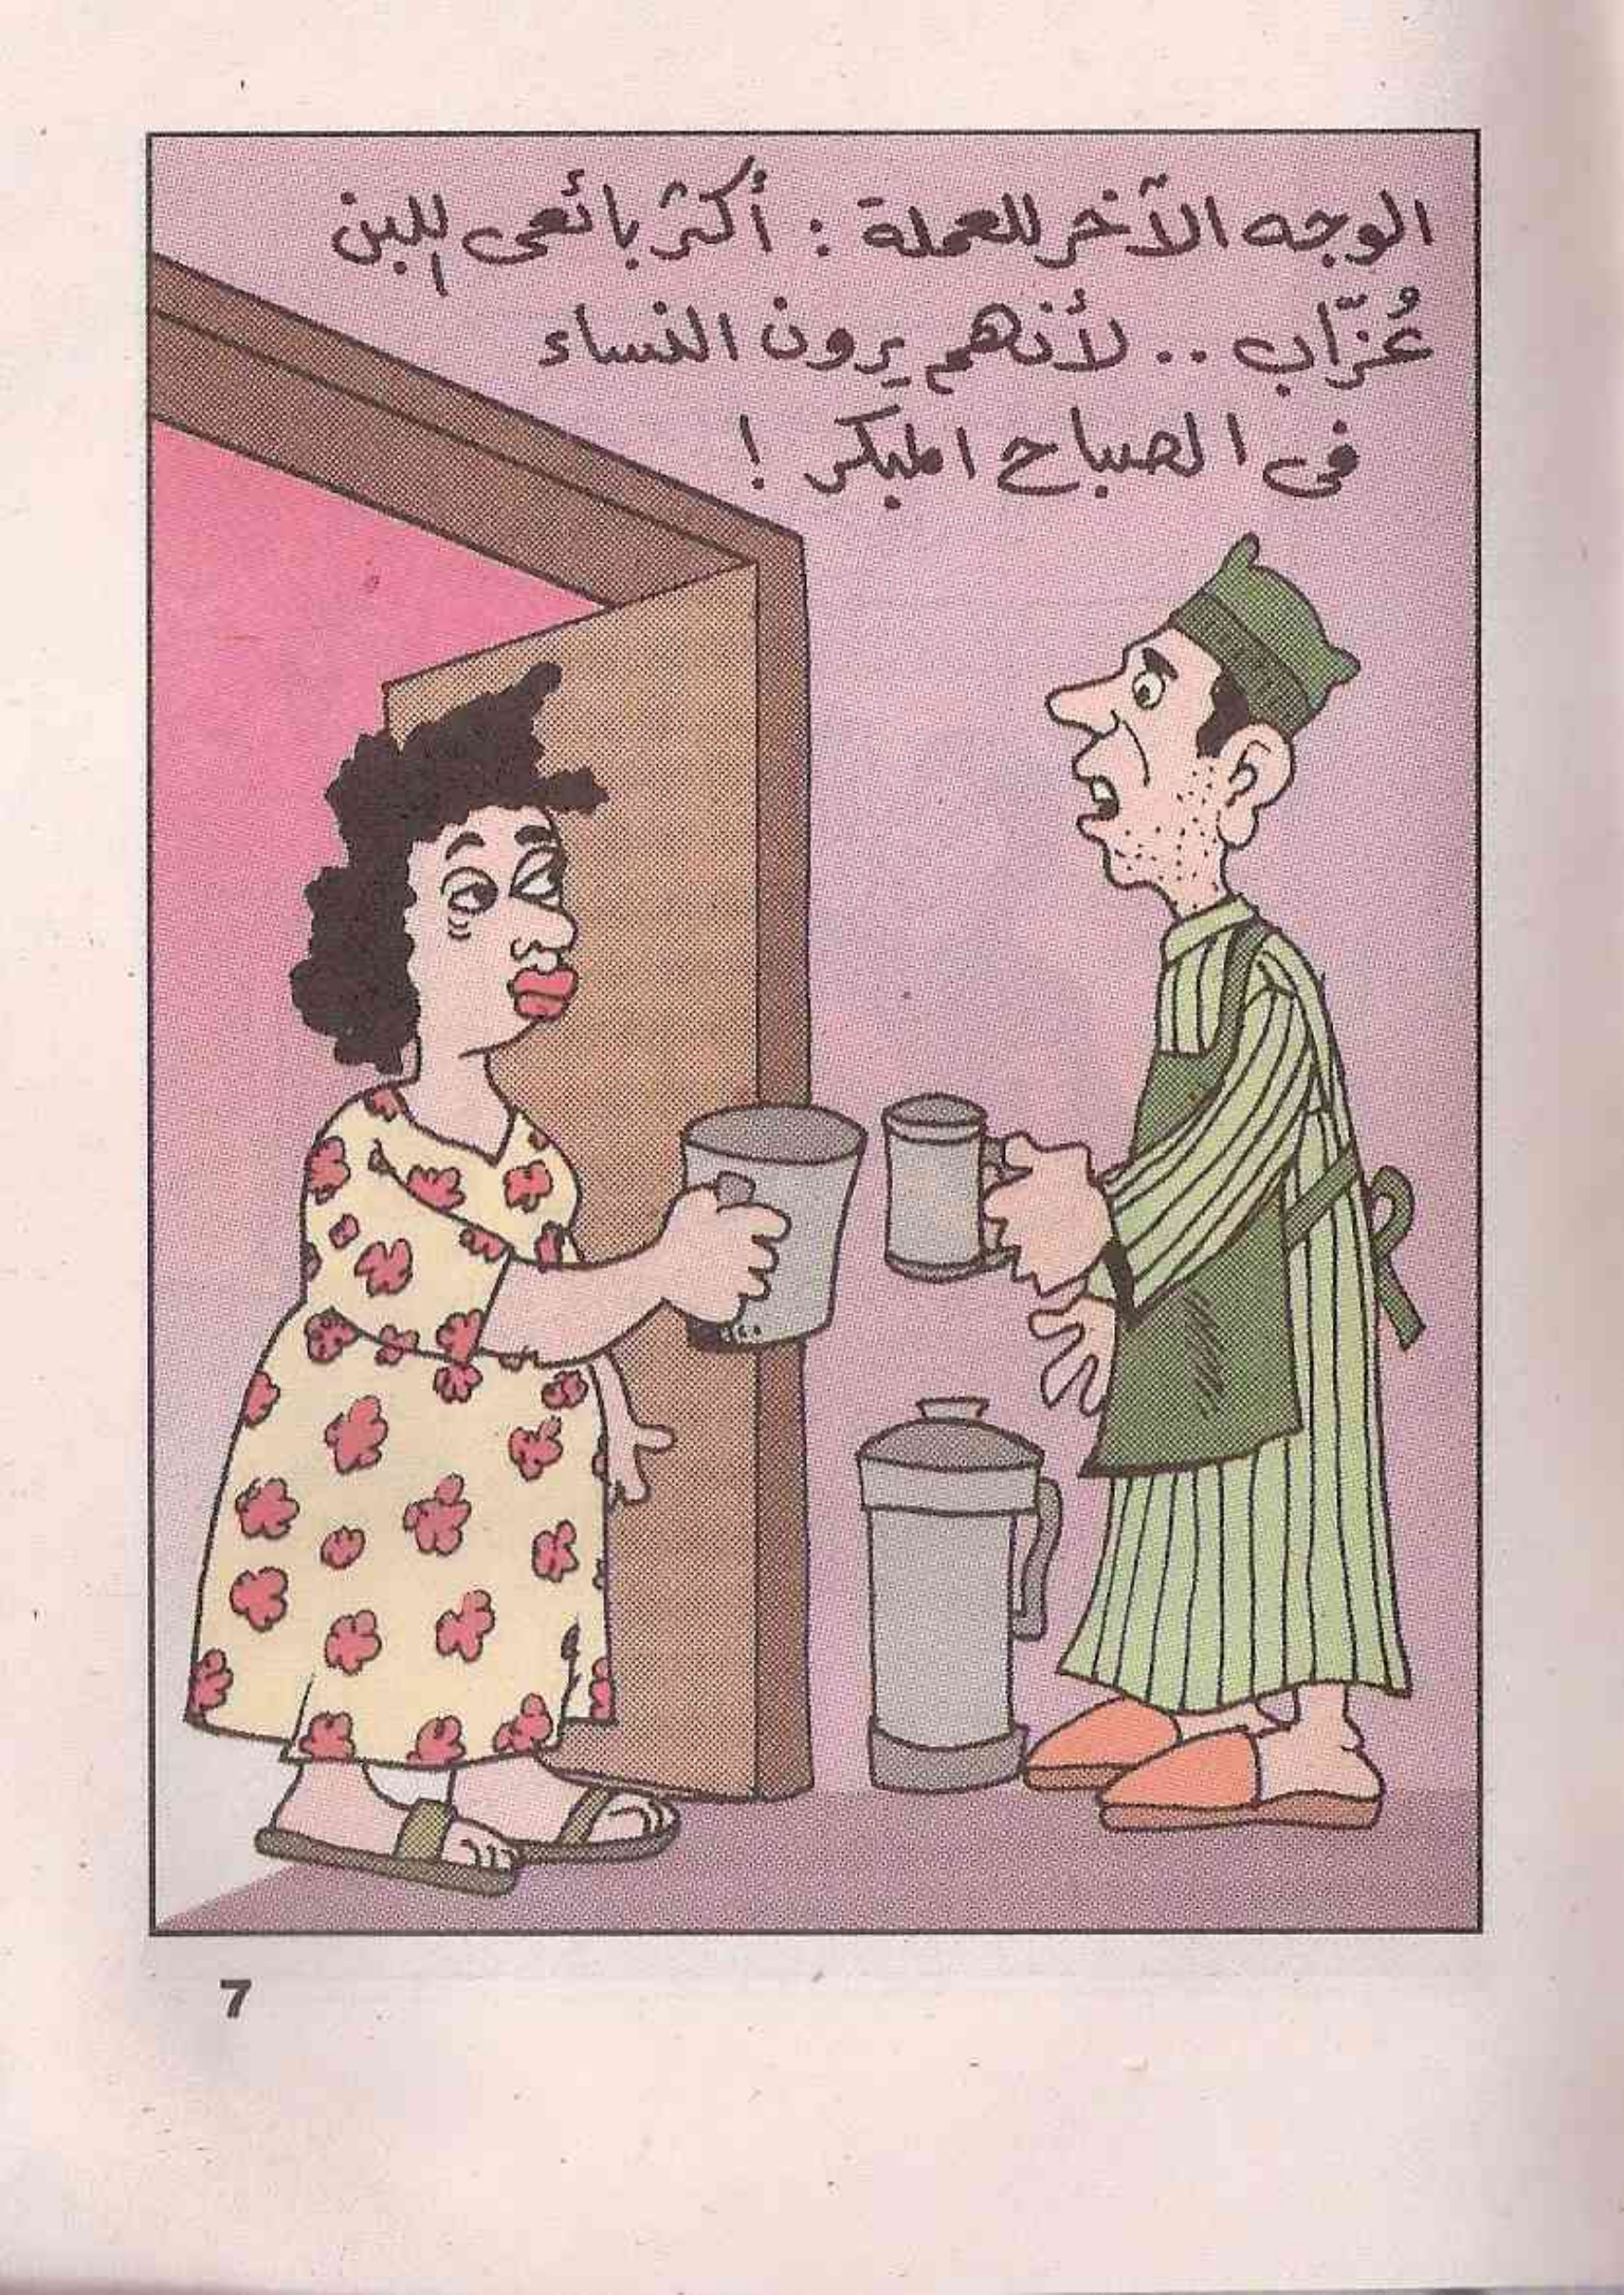 الوجه الآخر للعملة : أكثر بائعى اللبن
عُزّاب .. لأنهم يرون النساء
فى الصباح المبكر !
7